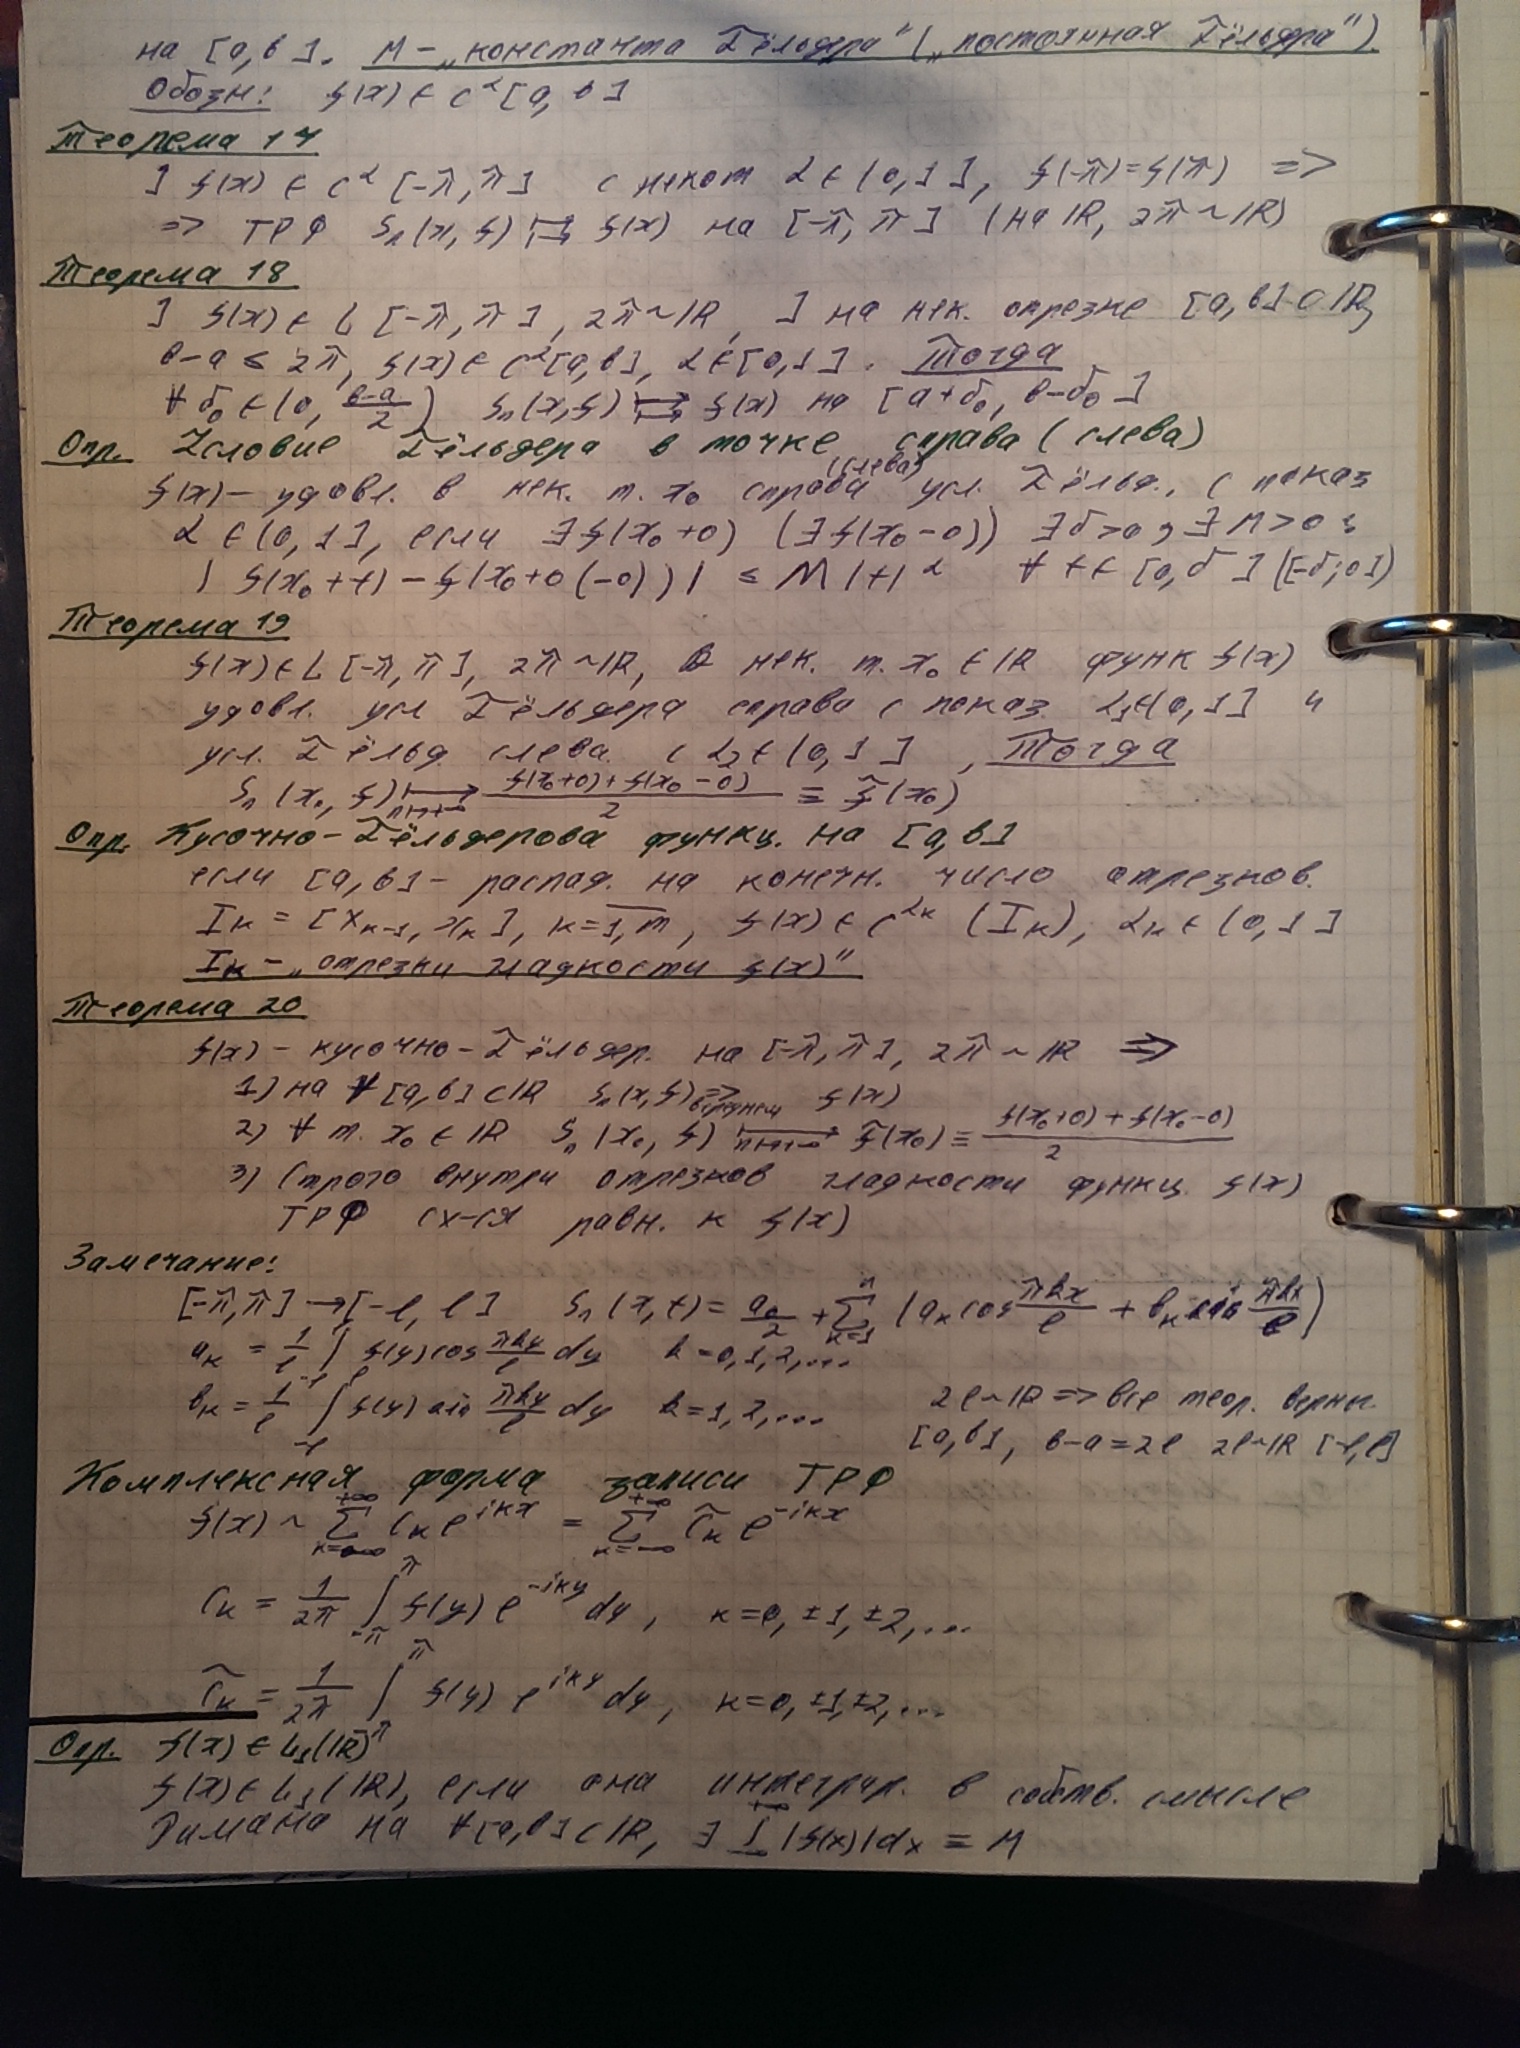 на [a, b]. M – „константа Гёльдера" („постоянная Гёльдера")
Обозн: f(x) ∈ C^α [a, b]
Теорема 17
] f(x) ∈ C^α [-π, π] с некот α ∈ (0, 1], f(-π) = f(π) =>
=> ТРФ Sₙ(x, f) ⇉ f(x) на [-π, π] (на ℝ, 2π ~ ℝ)
Теорема 18
] f(x) ∈ L [-π, π], 2π ~ ℝ, ] на нек. отрезке [a, b] ⊂ ℝ,
b-a ≤ 2π, f(x) ∈ C^α[a, b], α ∈ [0, 1]. Тогда
∀ δ₀ ∈ (0, (b-a)/2) Sₙ(x, f) ⇉ f(x) на [a+δ₀, b-δ₀]
Опр. Условие Гёльдера в точке справа (слева)
f(x) – удовл. в нек. т. x₀ справа (слева) усл. Гёльд., с показ
α ∈ (0, 1], если ∃ f(x₀+0) (∃ f(x₀-0)) ∃ δ>0, ∃ M>0 :
| f(x₀+t) - f(x₀+0 (-0)) | ≤ M |t|^α ∀ t ∈ [0, δ] ([-δ; 0])
Теорема 19
f(x) ∈ L [-π, π], 2π ~ ℝ, в нек. т. x₀ ∈ ℝ функ f(x)
удовл. усл Гёльдера справа с показ α₁∈(0, 1] и
усл. Гёльд слева с α₂ ∈ (0, 1], Тогда
Sₙ(x₀, f) ⟼ n→+∞ (f(x₀+0) + f(x₀-0))/2 ≡ f̃(x₀)
Опр. Кусочно-Гёльдерова функц. на [a, b]
если [a, b] – распад. на конечн. число отрезков.
Iₖ = [xₖ₋₁, xₖ], k = 1, m, f(x) ∈ C^αₖ (Iₖ), αₖ ∈ (0, 1]
Iₖ – „отрезки гладкости f(x)"
Теорема 20
f(x) – кусочно-Гёльдер. на [-π, π], 2π ~ ℝ =>
1) на ∀ [a, b] ⊂ ℝ Sₙ(x, f) => в среднем f(x)
2) ∀ т. x₀ ∈ ℝ Sₙ(x₀, f) ⟼ n→+∞ f̃(x₀) ≡ (f(x₀+0) + f(x₀-0))/2
3) Строго внутри отрезков гладкости функц. f(x)
ТРФ сх-ся равн. к f(x)
Замечание:
[-π, π] → [-l, l] Sₙ(x, f) = a₀/2 + ∑ₖ₌₁ⁿ (aₖ cos πkx/l + bₖ sin πkx/l)
aₖ = 1/l ∫₋ₗˡ f(y) cos πky/l dy k = 0, 1, 2, ...
bₖ = 1/l ∫₋ₗ f(y) sin πky/l dy k = 1, 2, ... 2l ~ ℝ => все теор. верны
[a, b], b-a = 2l 2l ~ ℝ [-l, l]
Комплексная форма записи ТРФ
f(x) ~ ∑ₖ₌₋∞^+∞ cₖ e^ikx = ∑ₖ₌₋∞^+∞ c̃ₖ e^-ikx
cₖ = 1/2π ∫₋π^π f(y) e^-iky dy, k = 0, ±1, ±2, ...
c̃ₖ = 1/2π ∫₋π^π f(y) e^iky dy, k = 0, ±1, ±2, ...
Опр. f(x) ∈ L₁(ℝ)
f(x) ∈ L₁(ℝ), если она интегрир. в собств. смысле
Римана на ∀ [a, b] ⊂ ℝ, ∃ ∫₋∞^+∞ |f(x)| dx = M